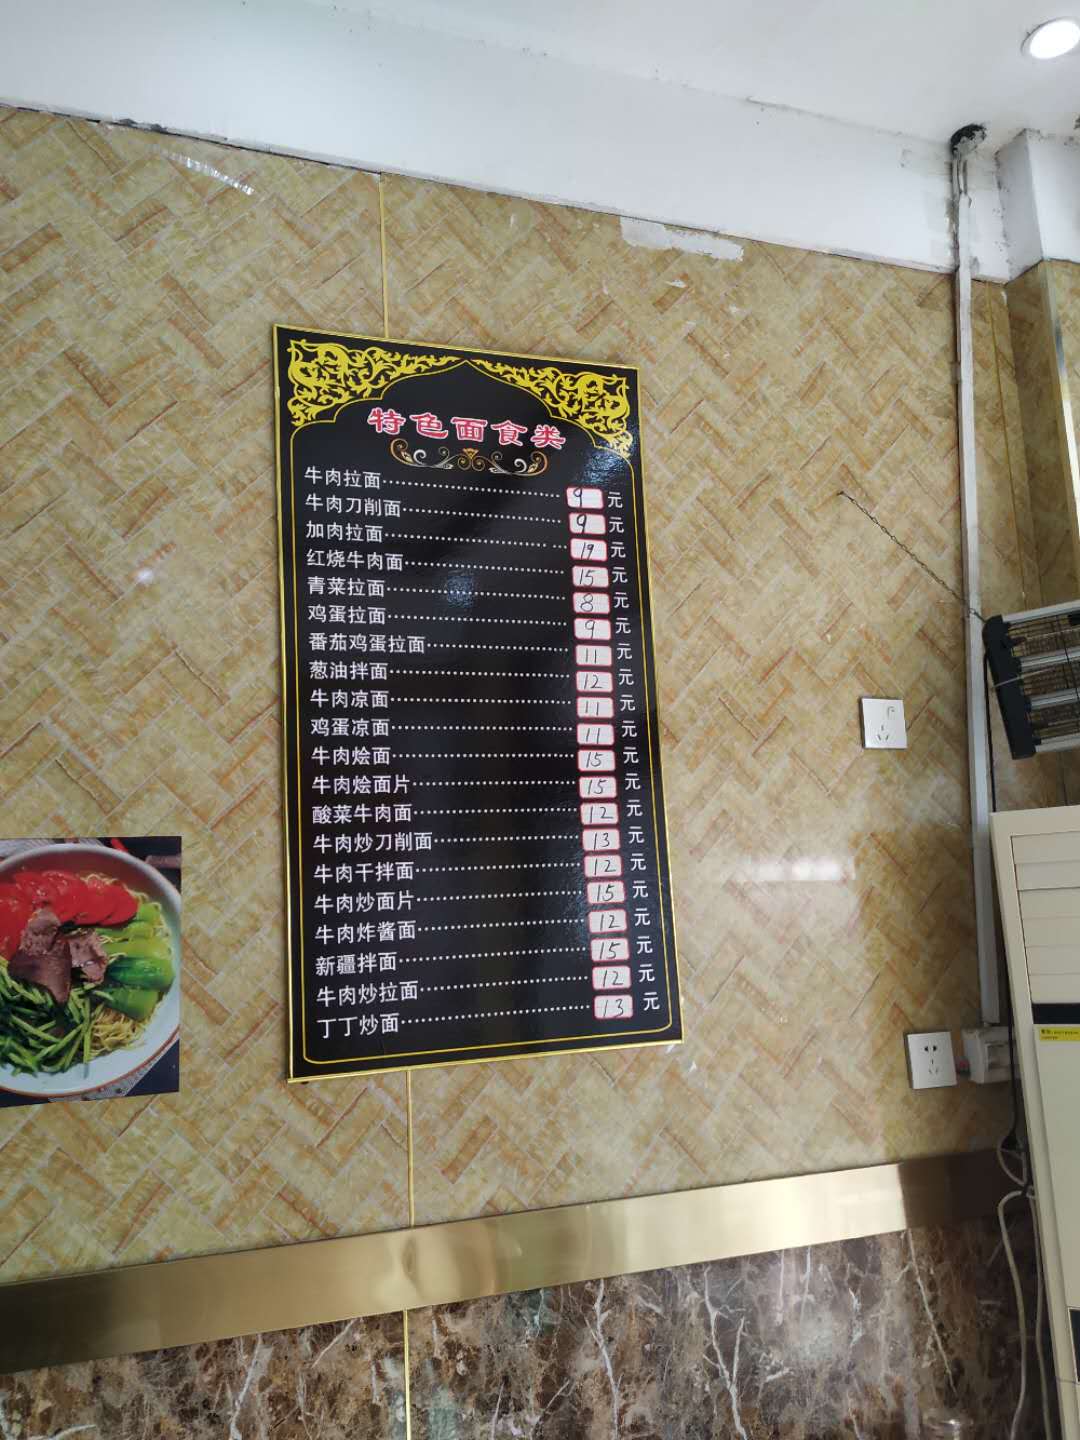 特色面食类
牛肉拉面 9 元
牛肉刀削面 9 元
加肉拉面 19 元
红烧牛肉面 15 元
青菜拉面 8 元
鸡蛋拉面 9 元
番茄鸡蛋拉面 11 元
葱油拌面 12 元
牛肉凉面 11 元
鸡蛋凉面 11 元
牛肉烩面 15 元
牛肉烩面片 15 元
酸菜牛肉面 12 元
牛肉炒刀削面 13 元
牛肉干拌面 12 元
牛肉炒面片 15 元
牛肉炸酱面 12 元
新疆拌面 15 元
牛肉炒拉面 12 元
丁丁炒面 13 元